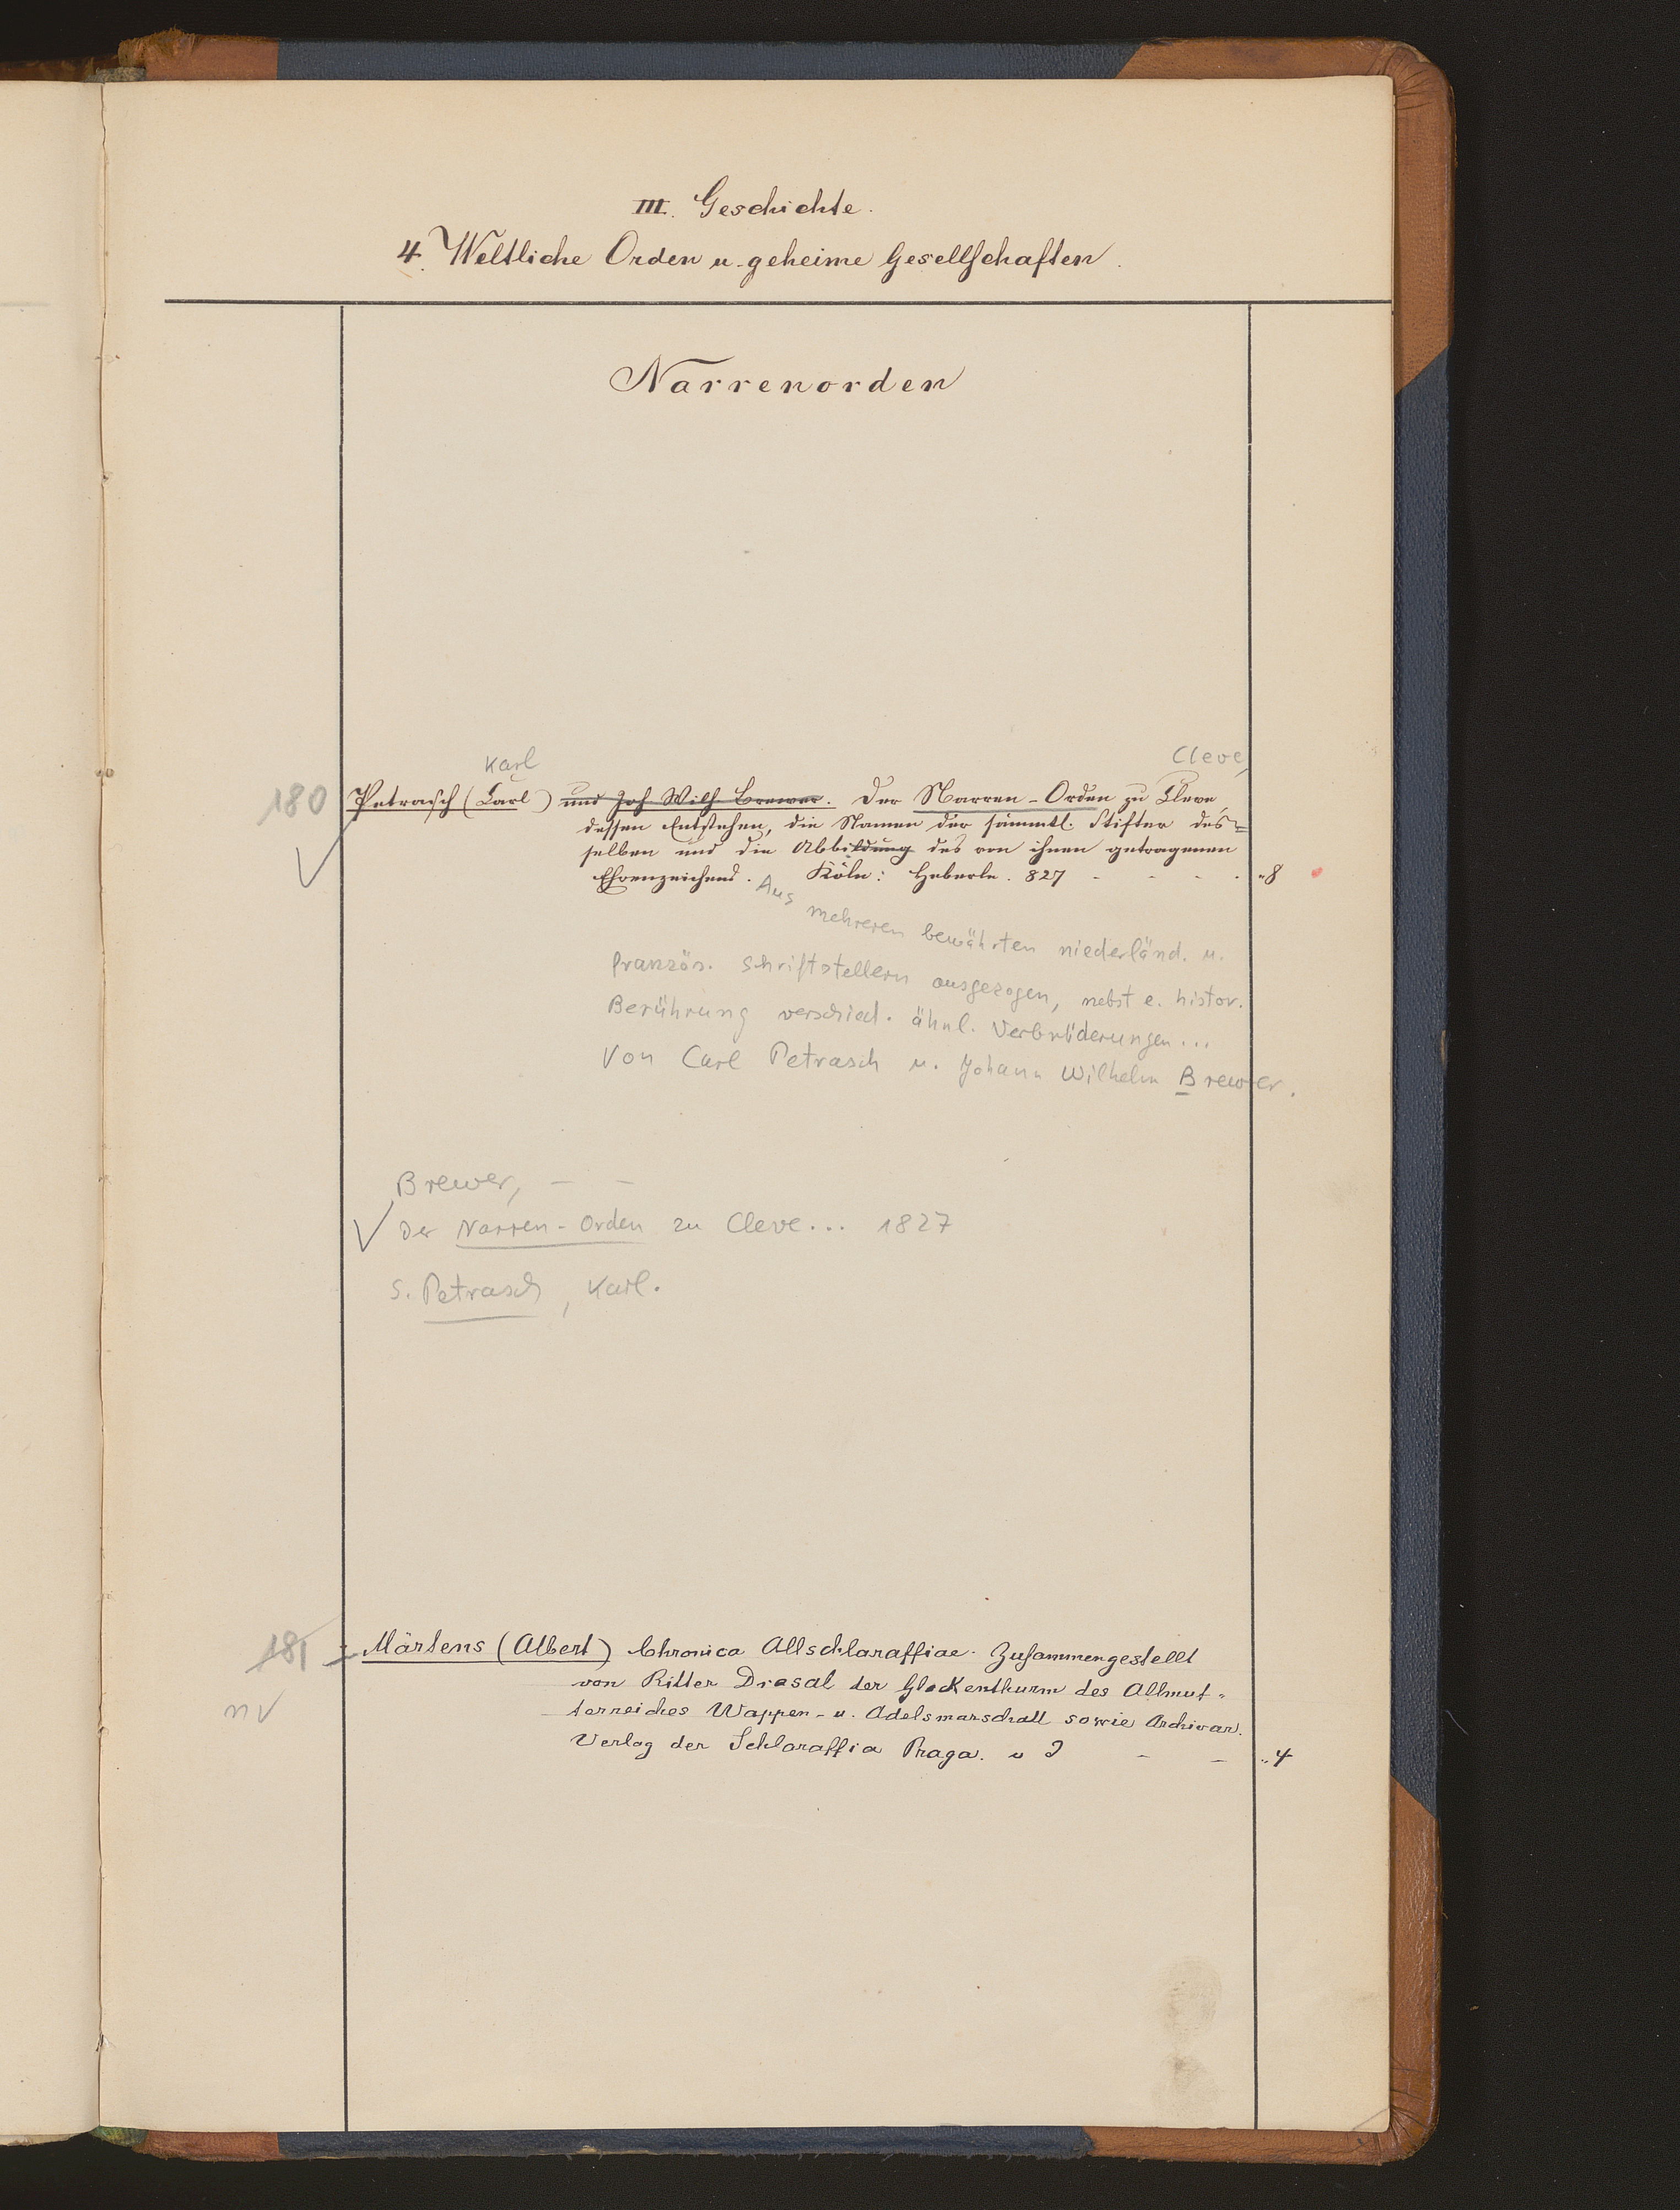 III. Geschichte.
4. Weltliche Orden u. geheime Gesellschaften.
Narrenorden
Karl
Cleve,
180
Petrasch (Carl) und Joh Wilh Brewer. Der Narren-Orden zu Cleve,
dessen Entstehen, die Namen der sämmtl. Stifter des=
selben und die Abbildung des von ihnen getragenen
Ehrenzeichens. Köln: Heberle. 827 - - - - „8
Aus mehreren bewährten niederländ. u.
französ. Schriftstellern ausgezogen, nebst e. histor.
Berührung verschied. ähnl. Verbrüderungen...
Von Carl Petrasch u. Johann Wilhelm Brewer.
Brewer, — —
Der Narren-Orden zu Cleve... 1827
S. Petrasch, Karl.
181
Märtens (Albert) Chronica Allschlaraffiae. Zusammengestellt
von Ritter Drasal der Glockenthurm des Allmut-
terreiches Wappen- u. Adelsmarschall sowie Archivar.
Verlag der Schlaraffia Praga. u J - - „4
nv